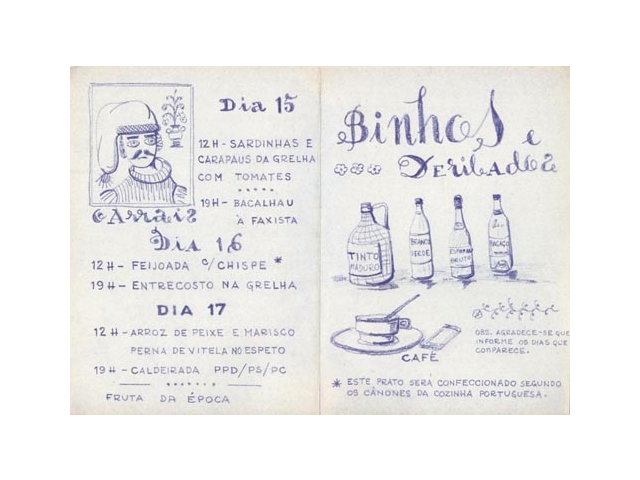 Dia 15
12H - SARDINHAS E
CARAPAUS DA GRELHA
COM TOMATES
19H - BACALHAU
À FAXISTA
Arrais
Dia 16
12H - FEIJOADA C/CHISPE *
19H - ENTRECOSTO NA GRELHA
DIA 17
12H - ARROZ DE PEIXE E MARISCO
PERNA DE VITELA NO ESPETO
19H - CALDEIRADA PPD/PS/PC
FRUTA DA ÉPOCA
Binhos e
DERIBADOS
TINTO
MADURO
BRANCO
VERDE
BRUTO
BAGAÇO
CAFÉ
OBS. AGRADECE-SE QUE
INFORME OS DIAS QUE
COMPARECE.
* ESTE PRATO SERA CONFECCIONADO SEGUNDO
OS CÂNONES DA COZINHA PORTUGUESA.